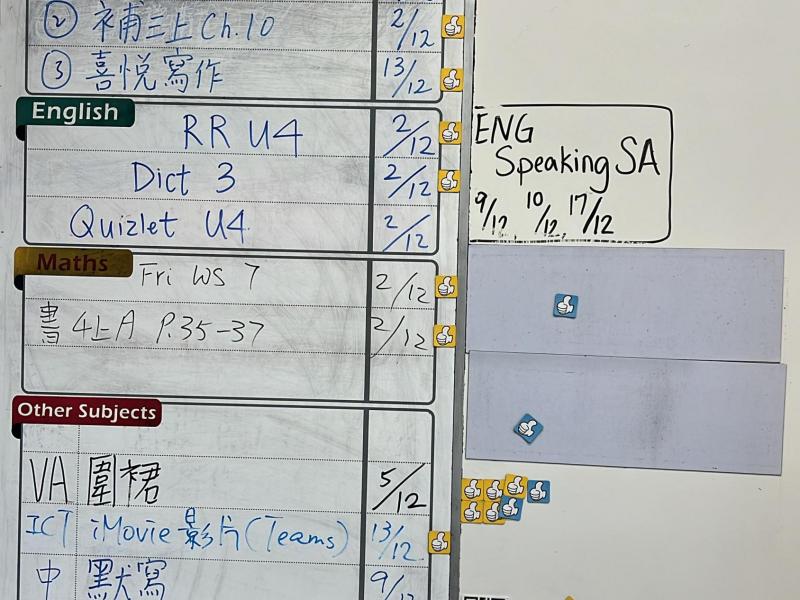 ② 補三上 Ch.10 2/12
③ 喜悅寫作 13/12
English
RR U4 2/12
Dict 3 2/12
Quizlet U4 2/12
ENG
Speaking SA
9/12, 10/12, 17/12
Maths
Fri WS 7 2/12
書 4上A P.35-37 2/12
Other Subjects
VA 圍裙 5/12
ICT iMovie 影片 (Teams) 13/12
中 默寫 9/12